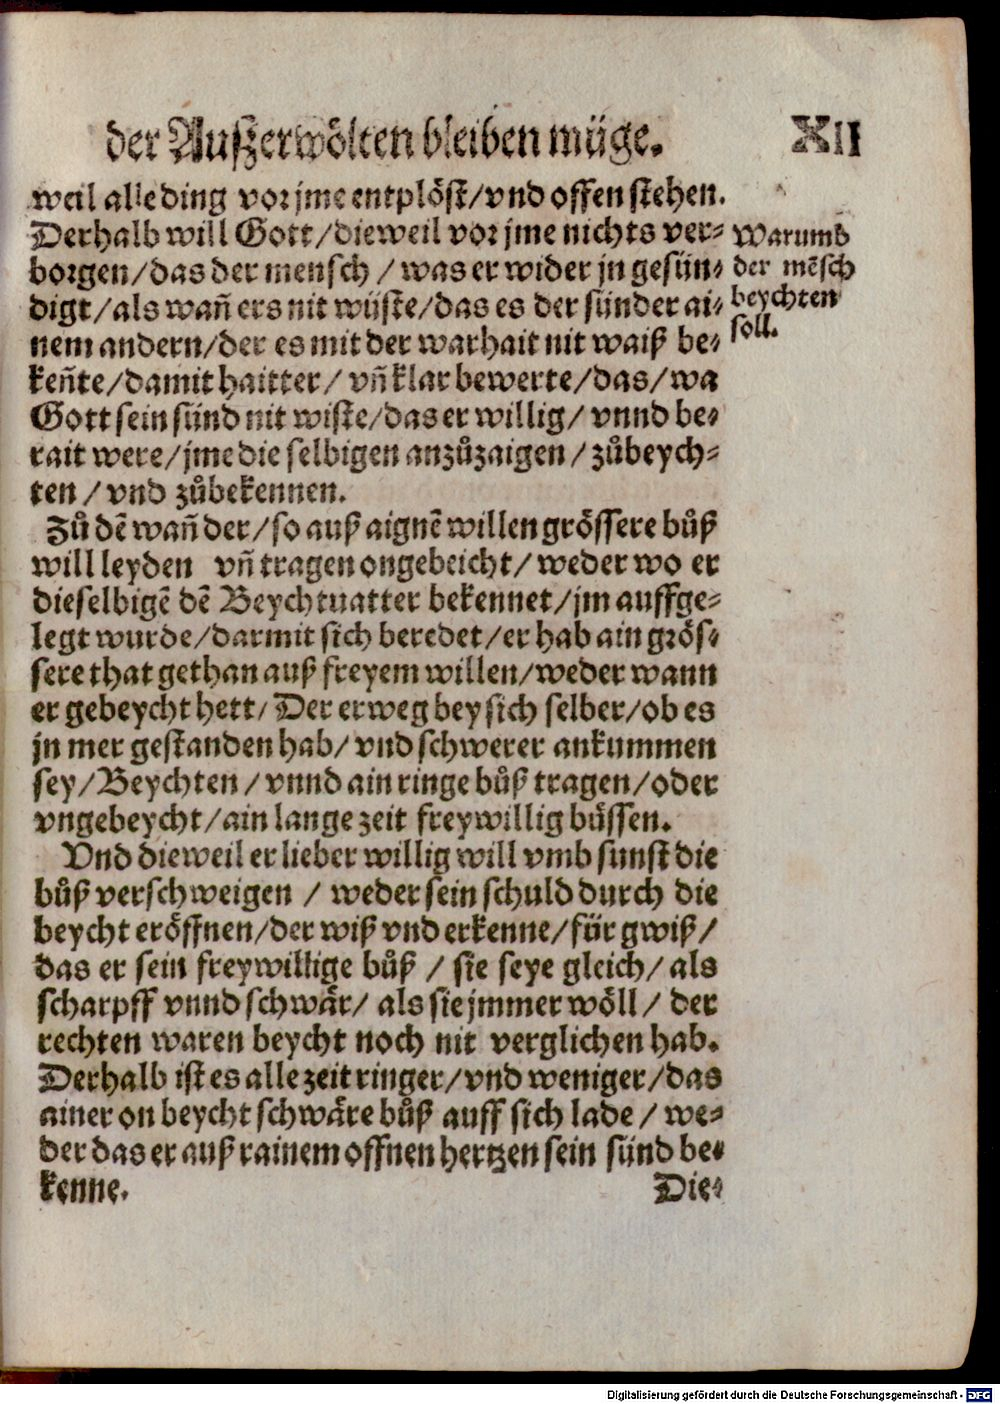 der Außerwölten bleiben müge. XII
weil alle ding vor jme entplöst/vnd offen stehen.
Derhalb will Gott/dieweil vor jme nichts ver-
borgen/das der mensch / was er wider jn gesün-
digt/als wañ ers nit wüste/das es der sünder ai-
nem andern/der es mit der warhait nit waiß be-
keñte/damit haitter/ vñ klar bewerte/das/wa
Gott sein sünd nit wiste/das er willig/ vnnd be-
rait were/jme die selbigen anzůzaigen / zůbeych-
ten / vnd zůbekennen.
Warumb
der mēsch
beychten
soll.
Zů dē wañ der/so auß aignē willen grössere bůß
will leyden vñ tragen ongebeicht/ weder wo er
dieselbigē dē Beychtuatter bekennet/jm auffge-
legt wurde/darmit sich beredet/er hab ain grös-
sere that gethan auß freyem willen/weder wann
er gebeycht hett/ Der erweg bey sich selber/ob es
jn mer gestanden hab/ vnd schwerer ankummen
sey/Beychten / vnnd ain ringe bůß tragen/oder
vngebeycht/ain lange zeit freywillig büssen.
Vnd dieweil er lieber willig will vmb sunst die
bůß verschweigen / weder sein schuld durch die
beycht eröffnen/der wiß vnd erkenne/für gwiß/
das er sein freywillige bůß / sie seye gleich/ als
scharpff vnnd schwär/ als sie jmmer wöll / der
rechten waren beycht noch nit verglichen hab.
Derhalb ist es alle zeit ringer/vnd weniger/das
ainer on beycht schwäre bůß auff sich lade / we-
der das er auß rainem offnen hertzen sein sünd be-
kenne. Die-
Digitalisierung gefördert durch die Deutsche Forschungsgemeinschaft - DFG